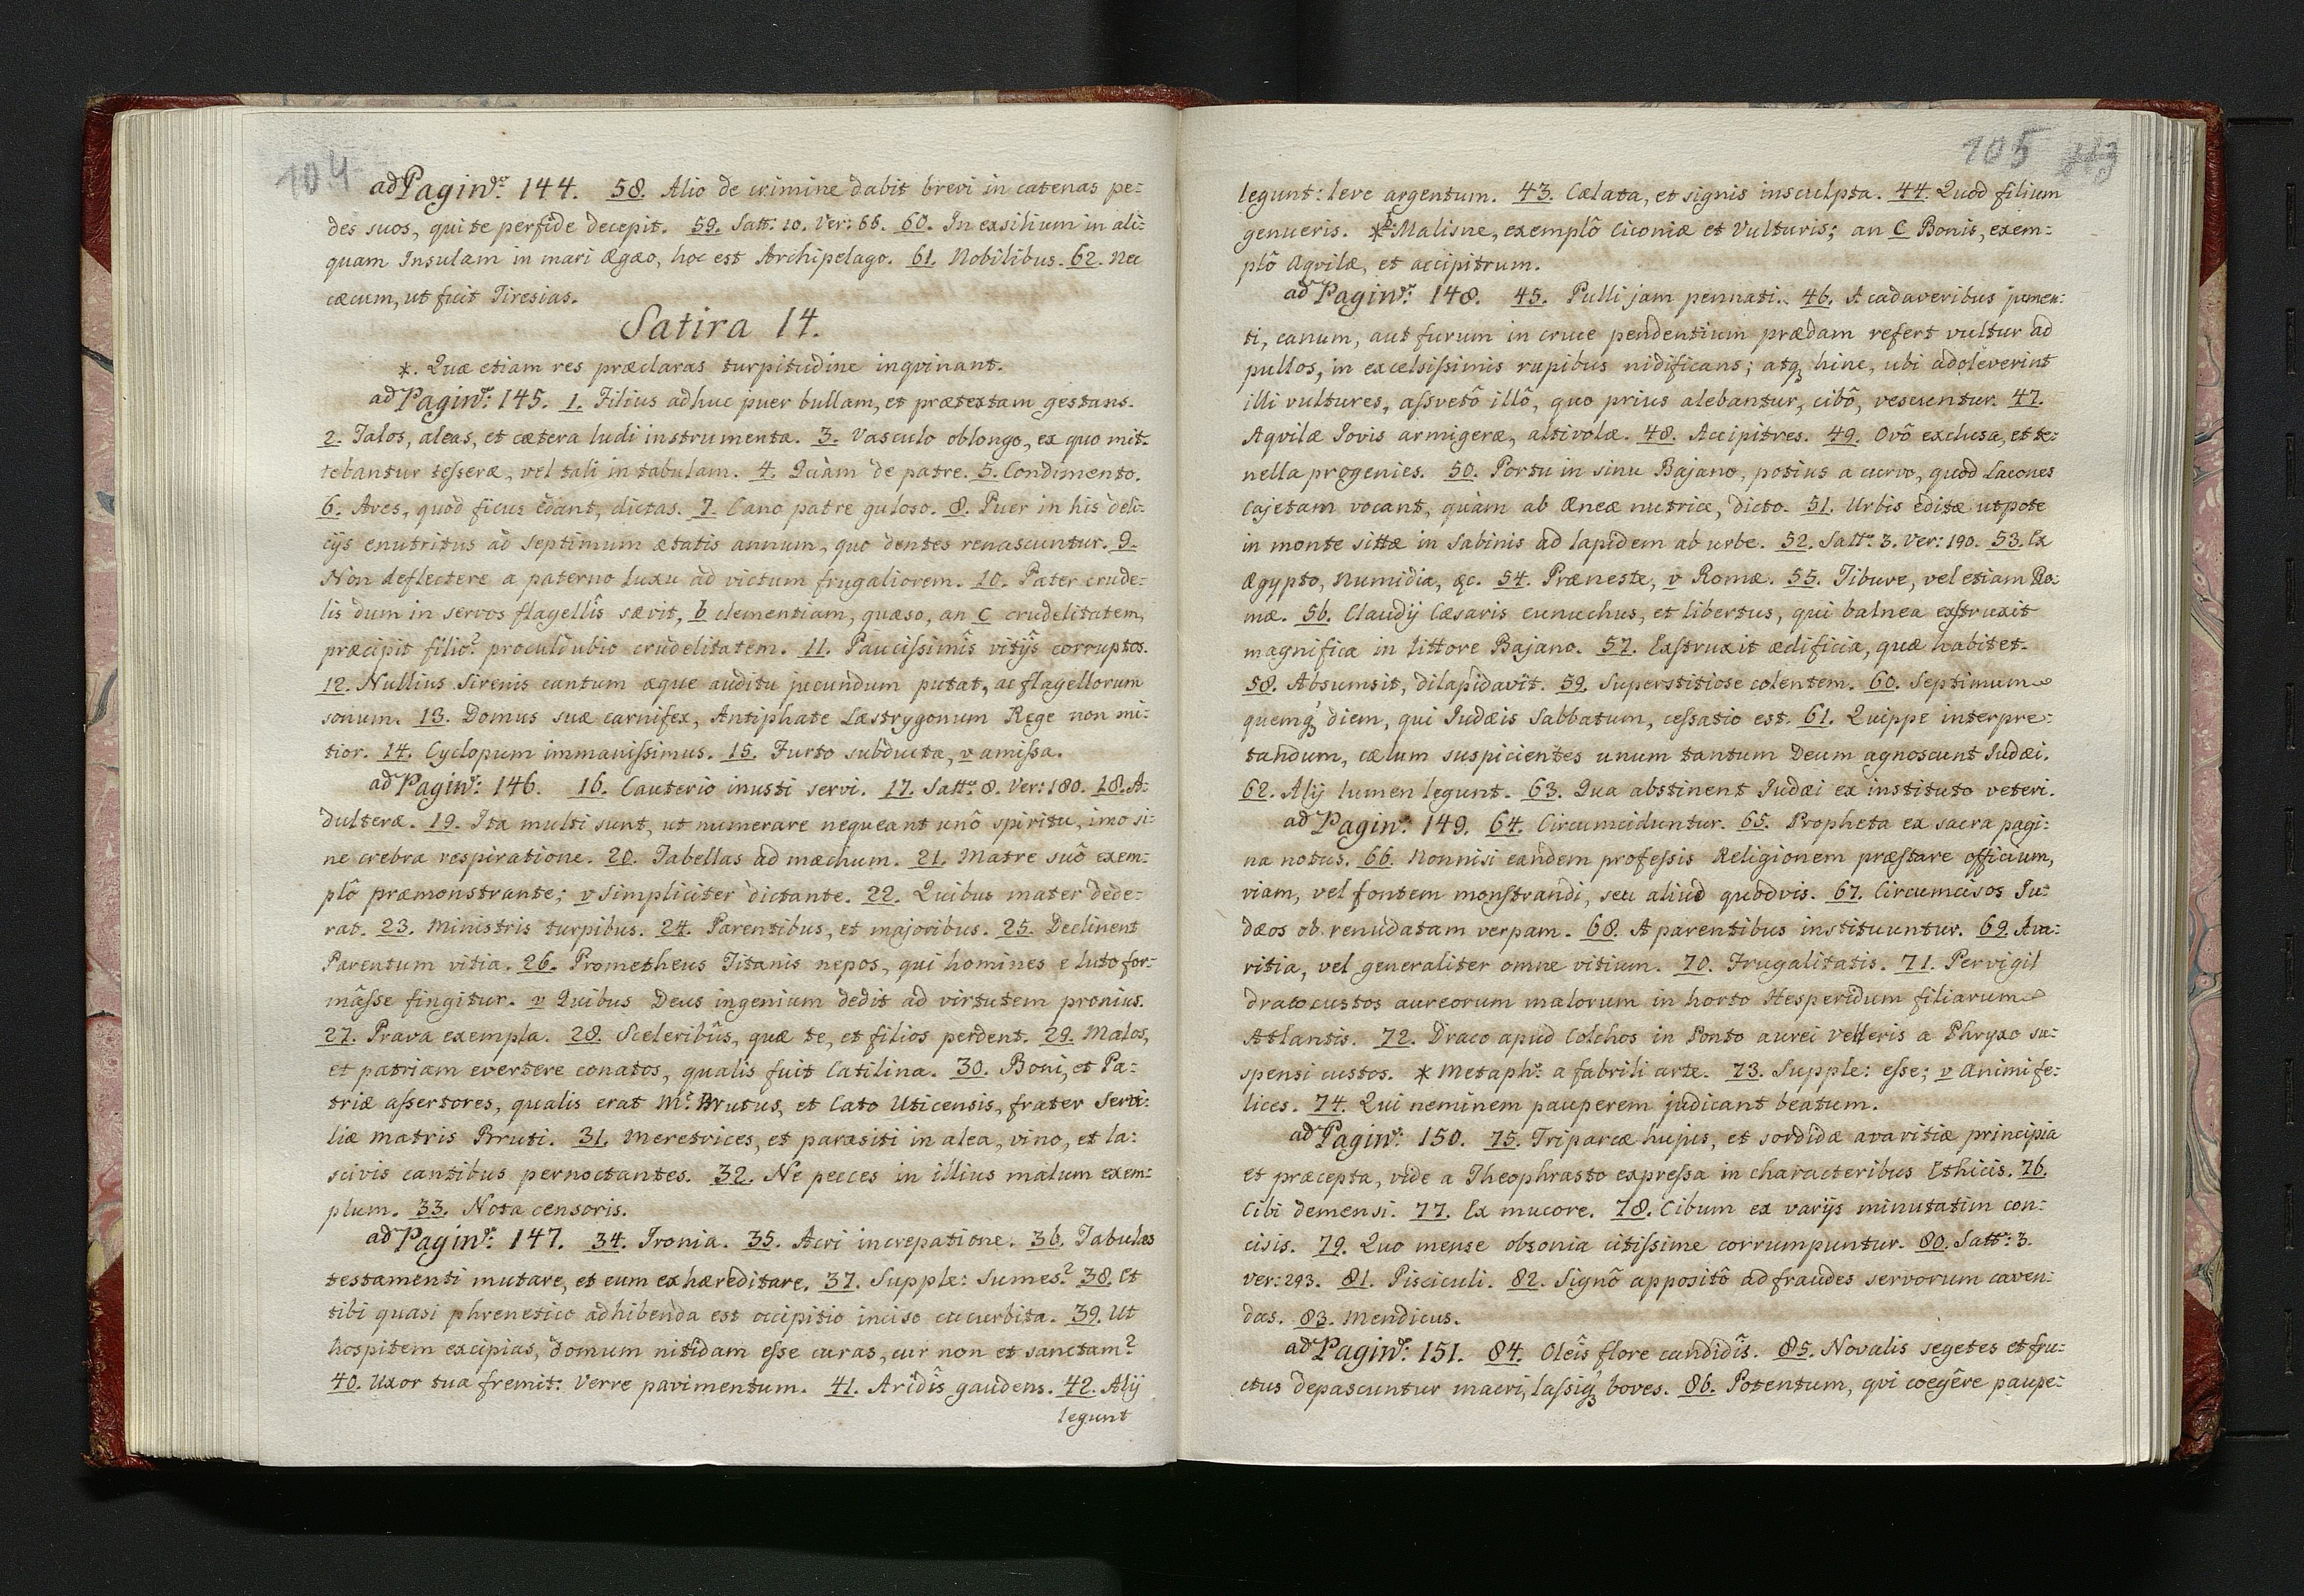 104
ad Pagin. 144. 58. Alio de crimine dabit brevi in catenas pe=
des suos, qui te perfide decepit. 59. Satt: 10. Ver: 66. 60. In exsilium in ali=
quam Insulam in mari Ægæo, hoc est Archipelago. 61. Nobilibus. 62. Nec
cæcum, ut fuit Tiresias.
Satira 14.
*. Quæ etiam res præclaras turpitudine inqvinant.
ad Pagin: 145. 1. Filius adhuc puer bullam, et prætextam gestans.
2. Talos, aleas, et cætera ludi instrumenta. 3. Vasculo oblongo, ex quo mit=
tebantur tesseræ, vel tali in tabulam. 4. Quàm de patre. 5. Condimento.
6. Aves, quòd ficus edant, dictas. 7. Cano patre guloso. 8. Puer in his deli=
cijs enutritus ad septimum ætatis annum, quo dentes renascuntur. 9.
Non deflectere a paterno luxu ad victum frugaliorem. 10. Pater crude=
lis dum in servos flagellîs sævit, b clementiam, quæso, an c crudelitatem,
præcipit filio? proculdubio crudelitatem. 11. Paucissimîs vitijs corruptos.
12. Nullius Sirenis cantum æque auditu jucundum putat, ac flagellorum
sonum. 13. Domus suæ carnifex, Antiphate Læstrygonum Rege non mi=
tior. 14. Cyclopum immanissimus. 15. Furto subducta, v amissa.
ad Pagin: 146. 16. Cauterio inusti servi. 17. Satt: 8. Ver: 180. 18. A=
dulteræ. 19. Ita multi sunt, ut numerare nequeant unô spiritu, imo si=
ne crebra respiratione. 20. Tabellas ad mæchum. 21. Matre suô exem=
plô præmonstrante; v simpliciter dictante. 22. Quibus mater dede=
rat. 23. Ministris turpibus. 24. Parentibus, et majoribus. 25. Declinent
Parentum vitia. 26. Prometheus Titanis nepos, qui homines e luto for=
mâsse fingitur. v Quibus Deus ingenium dedit ad virtutem pronius.
27. Prava exempla. 28. Sceleribûs, quæ te, et filios perdent. 29. Malos,
et patriam evertere conatos, qualis fuit Catilina. 30. Boni, et Pa=
triæ assertores, qualis erat M: Brutus, et Cato Uticensis, frater Servi=
liæ matris Bruti. 31. Meretrices, et parasiti in alea, vino, et la=
scivis cantibus pernoctantes. 32. Ne pecces in illius malum exem=
plum. 33. Nota censoris.
ad Pagin: 147. 34. Ironia. 35. Acri increpatione. 36. Tabulas
testamenti mutare, et eum exhæreditare. 37. Supple: Sumes? 38. Et
tibi quasi phrenetico adhibenda est occipitio inciso cucurbita. 39. Ut
hospitem excipias, domum nitidam esse curas, cur non et sanctam?
40. Uxor tua fremit: Verre pavimentum. 41. Aridîs gaudens. 42. Alij
legunt
105 113
legunt: leve argentum. 43. Cælata, et signis insculpta. 44. Quòd filium
genueris. * b Malisne, exemplô Ciconiæ et Vulturis; an C Bonis, exem=
plô Aqvilæ, et accipitrum.
ad Pagin: 148. 45. Pulli jam pennati. 46. A cadaveribus jumen=
ti, canum, aut furum in cruce pendentium prædam refert vultur ad
pullos, in excelsissimis rupibus nidificans; atq hinc, ubi adoleverint
illi vultures, assvetô illô, quo prius alebantur, cibô, vescuntur. 47.
Aqvilæ Jovis armigeræ, altivolæ. 48. Accipitres. 49. Ovô exclusa, et te=
nella progenies. 50. Portu in sinu Bajano, potius a curvo, quòd Lacones
Cajetam vocant, quàm ab Æneæ nutrice, dicto. 51. Urbis editæ utpote
in monte sittæ in Sabinis ad lapidem ab urbe. 52. Satt: 3. Ver: 190. 53. Ex
Ægypto, Numidia, &c. 54. Præneste, v Romæ. 55. Tibure, vel etiam Ro=
mæ. 56. Claudij Cæsaris eunuchus, et libertus, qui balnea exstruxit
magnifica in littore Bajano. 57. Exstruxit ædificia, quæ habitet.
58. Absumsit, dilapidavit. 59. Superstitiose colentem. 60. Septimum
quemq diem, qui Iudæis Sabbatum, cessatio est. 61. Quippe interpre=
tandum, cælum suspicientes unum tantum Deum agnoscunt Iudæi.
62. Alij lumen legunt. 63. Qua abstinent Iudæi ex instituto veteri.
ad Pagin: 149. 64. Circumciduntur. 65. Propheta ex sacra pagi=
na notus. 66. Nonnisi eandem professis Religionem præstare officium,
viam, vel fontem monstrandi, seu aliud quodvis. 67. Circumcisos Iu=
dæos ob renudatam verpam. 68. A parentibus instituuntur. 69. Ava=
ritia, vel generaliter omne vitium. 70. Frugalitatis. 71. Pervigil
draco custos aureorum malorum in horto Hesperidum filiarum
Atlantis. 72. Draco apud Colchos in Ponto aurei velleris a Phryxo su=
spensi custos. * Metaph: a fabrili arte. 73. Supple: esse; v Animi fe=
lices. 74. Qui neminem pauperem judicant beatum.
ad Pagin: 150. 75. Triparcæ hujus, et sordidæ avaritiæ principia
et præcepta, vide a Theophrasto expressa in characteribus Ethicis. 76.
Cibi demensi. 77. Ex mucore. 78. Cibum ex varijs minutatim con=
cisis. 79. Quo mense obsonia citissime corrumpuntur. 80. Satt: 3.
ver: 293. 81. Pisciculi. 82. Signô appositô ad fraudes servorum caven=
das. 83. Mendicus.
ad Pagin: 151. 84. Oleîs flore candidîs. 85. Novalis segetes et fru=
ctus depascuntur macri, lassiq boves. 86. Potentum, qvi coegêre paupe=